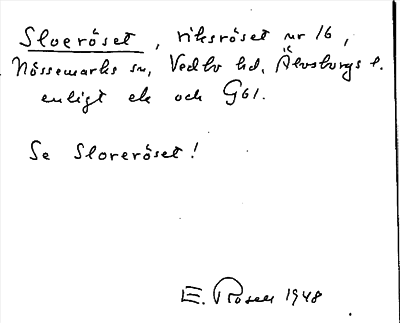 Sloeröset, riksröset nr 16,
Nössemarks sn, Vedbo hd, Älvsborgs l.
enligt ek och G61.
Se Sloreröset!
E. Rosell 1948